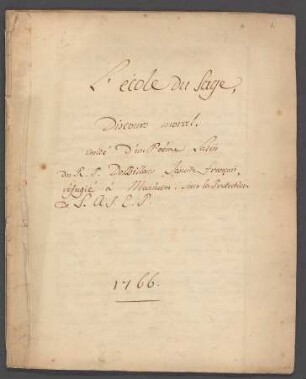 L'école du Sage,
Discours moral.
imité d'un Poëme Latin
du R. P. Desbillons Jesuite François,
réfugié à Manheim. sous la Protection
de S. A. S. E. P.
1766.